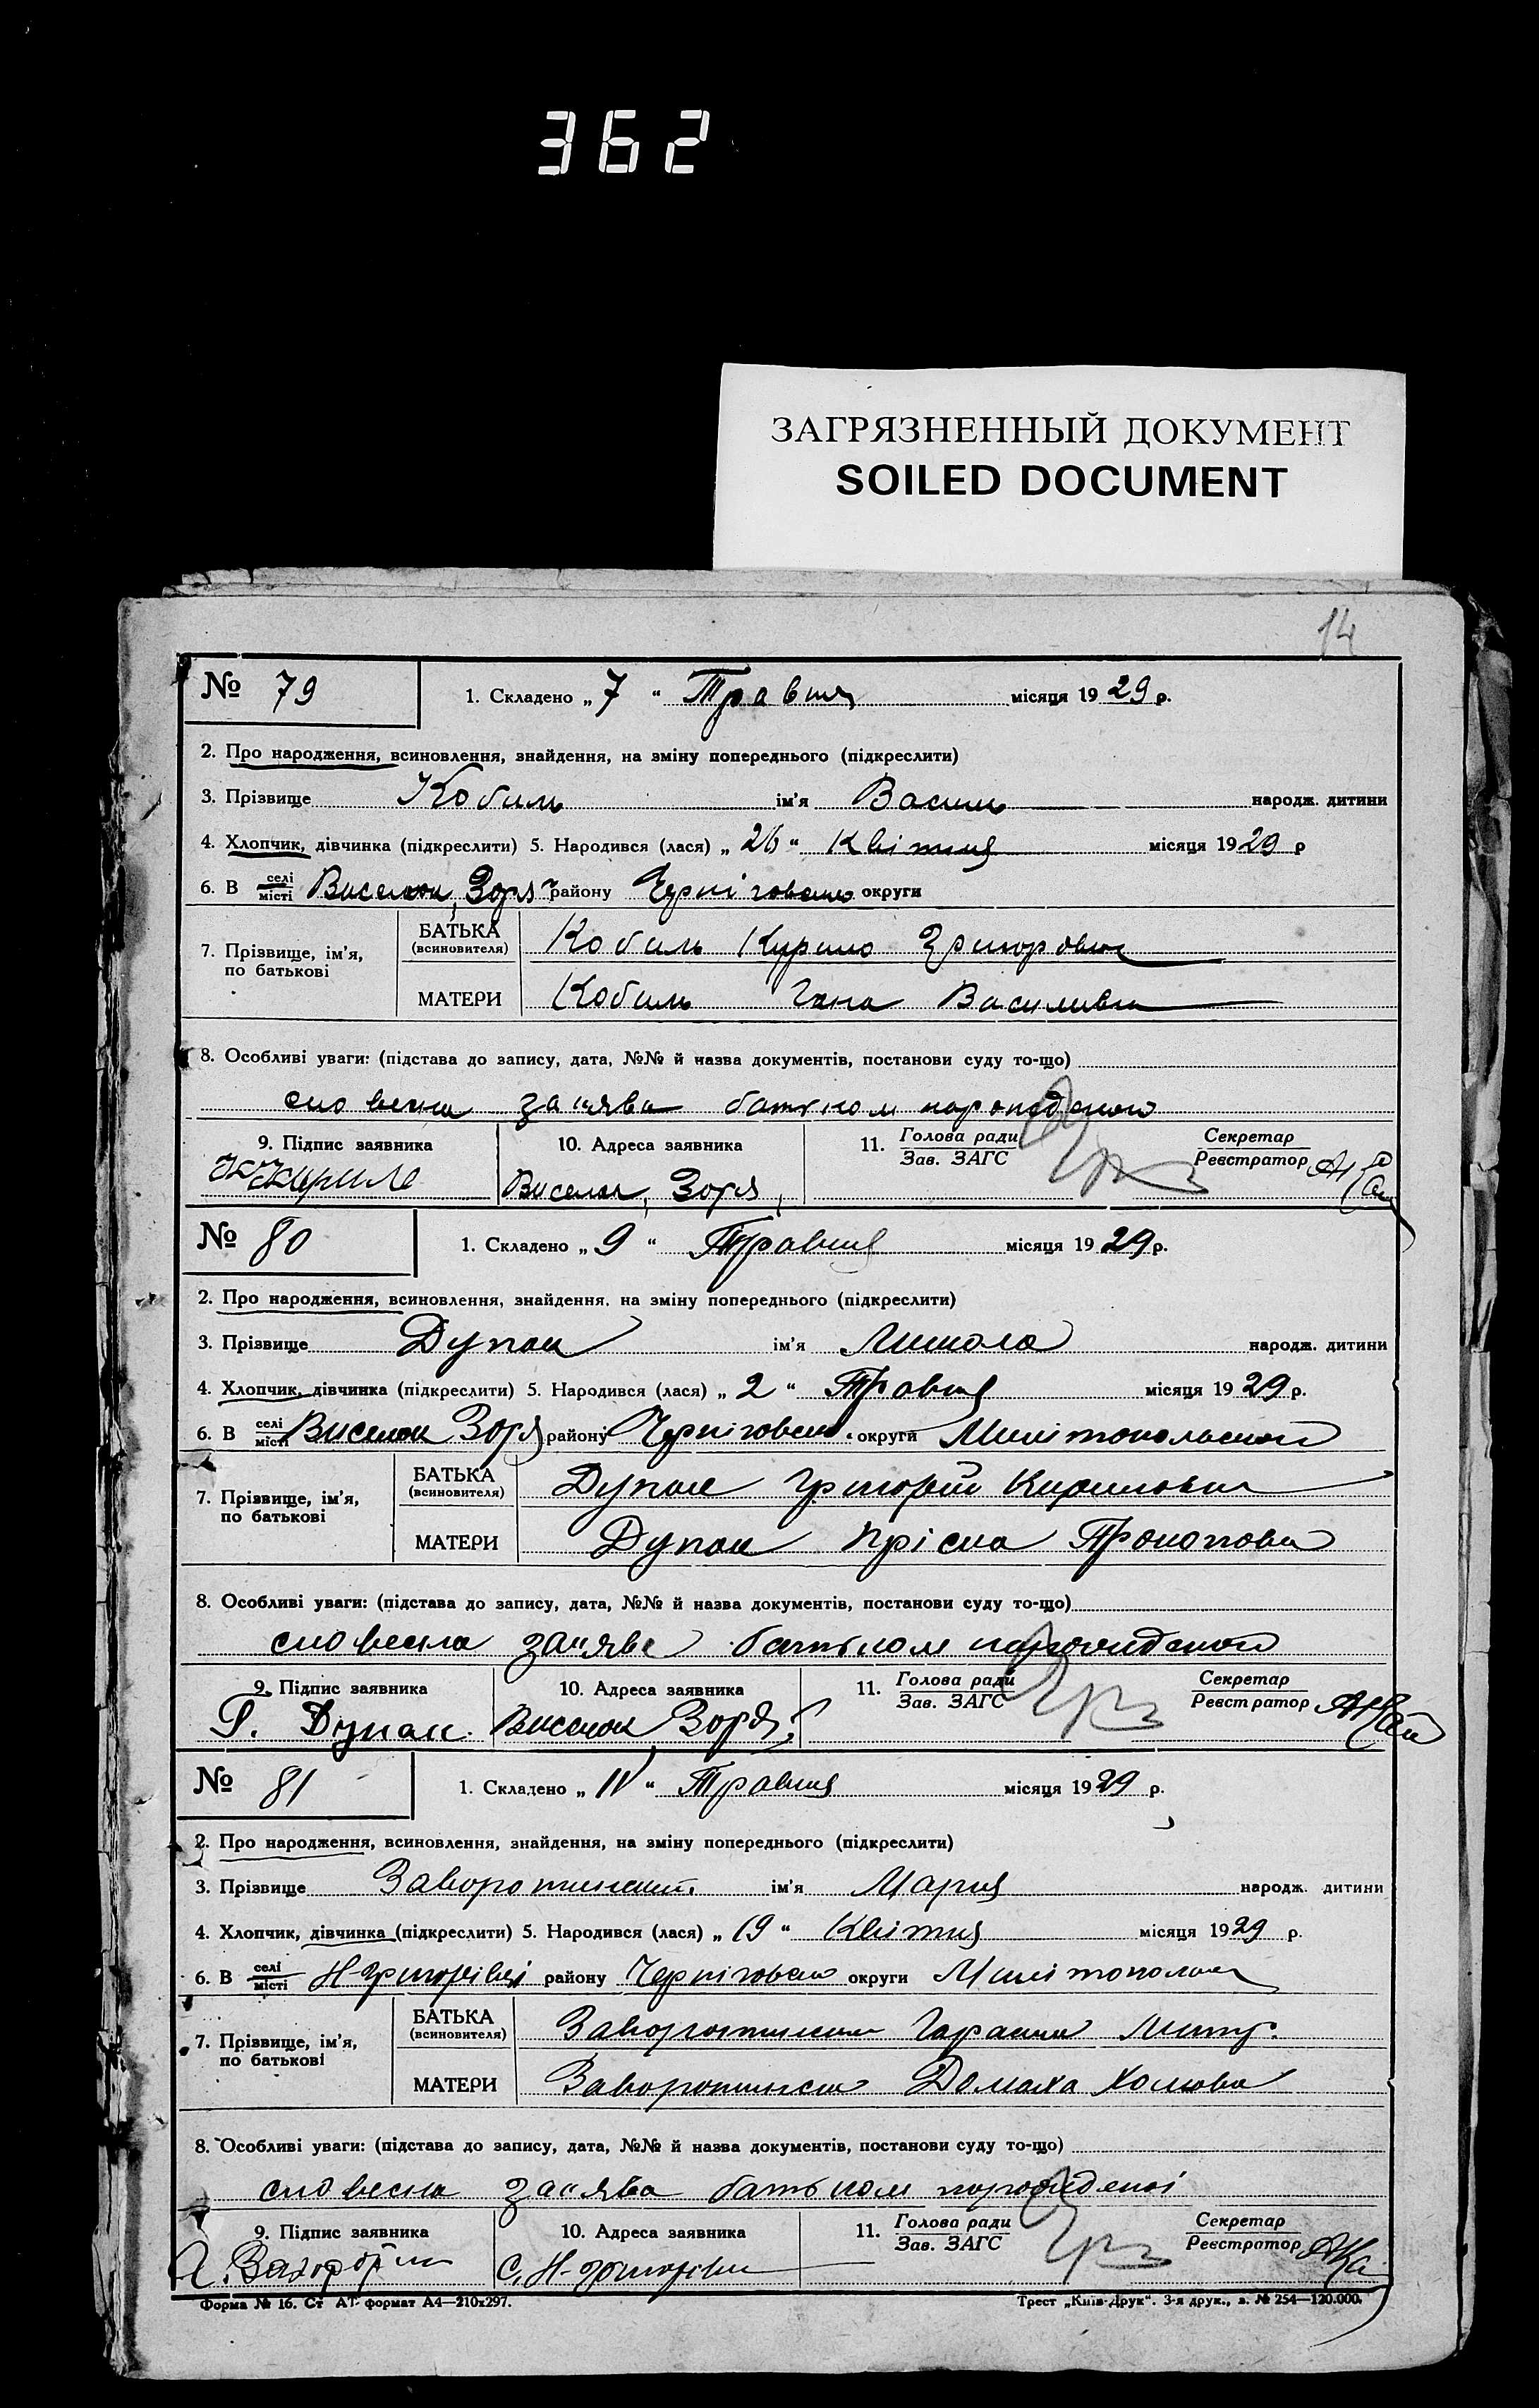 362
ЗАГРЯЗНЕННЫЙ ДОКУМЕНТ
SOILED DOCUMENT
14
№ 79 1. Складено „ 7 “ Травня місяця 19 29 р.
2. Про народження, всиновлення, знайдення, на зміну попереднього (підкреслити)
3. Прізвище Кобиль ім'я Василь народж. дитини
4. Хлопчик, дівчинка (підкреслити) 5. Народився (лася) „ 26 “ Квітня місяця 19 29 р
6. В селі місті Виселок, Зоря району Черніговсько округи
7. Прізвище, ім'я, по батькові
БАТЬКА (всиновителя) Кобиль Курило Григорович
МАТЕРИ Кобиль Гана Василивна
8. Особливі уваги: (підстава до запису, дата, №№ й назва документів, постанови суду то-що)
словесна заявa батьком
9. Підпис заявника 10. Адреса заявника 11. Голова ради Зав. ЗАГС Секретар Реєстратор
Виселок, Зоря,
№ 80 1. Складено „ 9 “ Травня місяця 19 29 р.
2. Про народження, всиновлення, знайдення, на зміну попереднього (підкреслити)
3. Прізвище Дупак ім'я Микола народж. дитини
4. Хлопчик, дівчинка (підкреслити) 5. Народився (лася) „ 2 “ Травня місяця 19 29 р.
6. В селі місті Виселок Зоря району Черніговськ. округи Милітопольской
7. Прізвище, ім'я, по батькові
БАТЬКА (всиновителя) Дупак Григорій Кирилович
МАТЕРИ Дупак Пріська Прокоповн
8. Особливі уваги: (підстава до запису, дата, №№ й назва документів, постанови суду то-що)
словесна заява батьком
9. Підпис заявника 10. Адреса заявника 11. Голова ради Зав. ЗАГС Секретар Реєстратор
Г. Дупак. Виселок, Зоря,
№ 81 1. Складено „ 11 “ Травня місяця 19 29 р.
2. Про народження, всиновлення, знайдення, на зміну попереднього (підкреслити)
3. Прізвище Заворотинський ім'я Мария народж. дитини
4. Хлопчик, дівчинка (підкреслити) 5. Народився (лася) „ 19 “ Квітня місяця 19 29 р.
6. В селі місті Н-Григорівці району Черніговсько округи
7. Прізвище, ім'я, по батькові
БАТЬКА (всиновителя) Гараськ Митр.
МАТЕРИ Домаха Хомовн
8. Особливі уваги: (підстава до запису, дата, №№ й назва документів, постанови суду то-що)
словесна заява батьком
9. Підпис заявника 10. Адреса заявника 11. Голова ради Зав. ЗАГС Секретар Реєстратор
с. Н-Григорівк
Форма № 16. Ст АТ- формат А4—210х297. Трест „Київ-Друк“. 3-я друк., з. № 254—120.000.